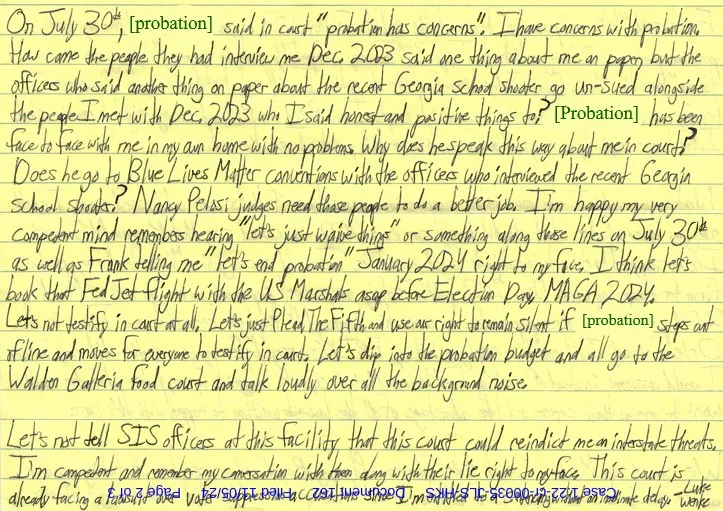 On July 30th, [probation] said in court "probation has concerns". I have concerns with probation.
How come the people they had interview me Dec. 2023 said one thing about me on paper, but the
officers who said another thing on paper about the recent Georgia school shooter go un-sued alongside
the people I met with Dec. 2023 who I said honest and positive things to? [Probation] has been
face to face with me in my own home with no problems. Why does he speak this way about me in court?
Does he go to Blue Lives Matter conventions with the officers who interviewed the recent Georgia
school shooter? Nancy Pelosi judges need those people to do a better job. I'm happy my very
competent mind remembers hearing "let's just waive things" or something along those lines on July 30th
as well as Frank telling me "let's end probation" January 2024 right to my face. I think let's
book that Fed Jet flight with the US Marshals asap before Election Day. MAGA 2024.
Let's not testify in court at all. Let's just Plead The Fifth and use our right to remain silent if [probation] steps out
of line and moves for everyone to testify in court. Let's dip into the probation budget and all go to the
Walden Galleria food court and talk loudly over all the background noise.
Let's not tell SIS officers at this facility that this court could reindict me on interstate threats.
I'm competent and remember my conversation with them along with their lie right to my face. This court is
Case 1:22-cr-00035-JLS-HKS Document 162 Filed 11/05/24 Page 2 of 3
already facing a lawsuit over since I'm delay -Luke
Wenke